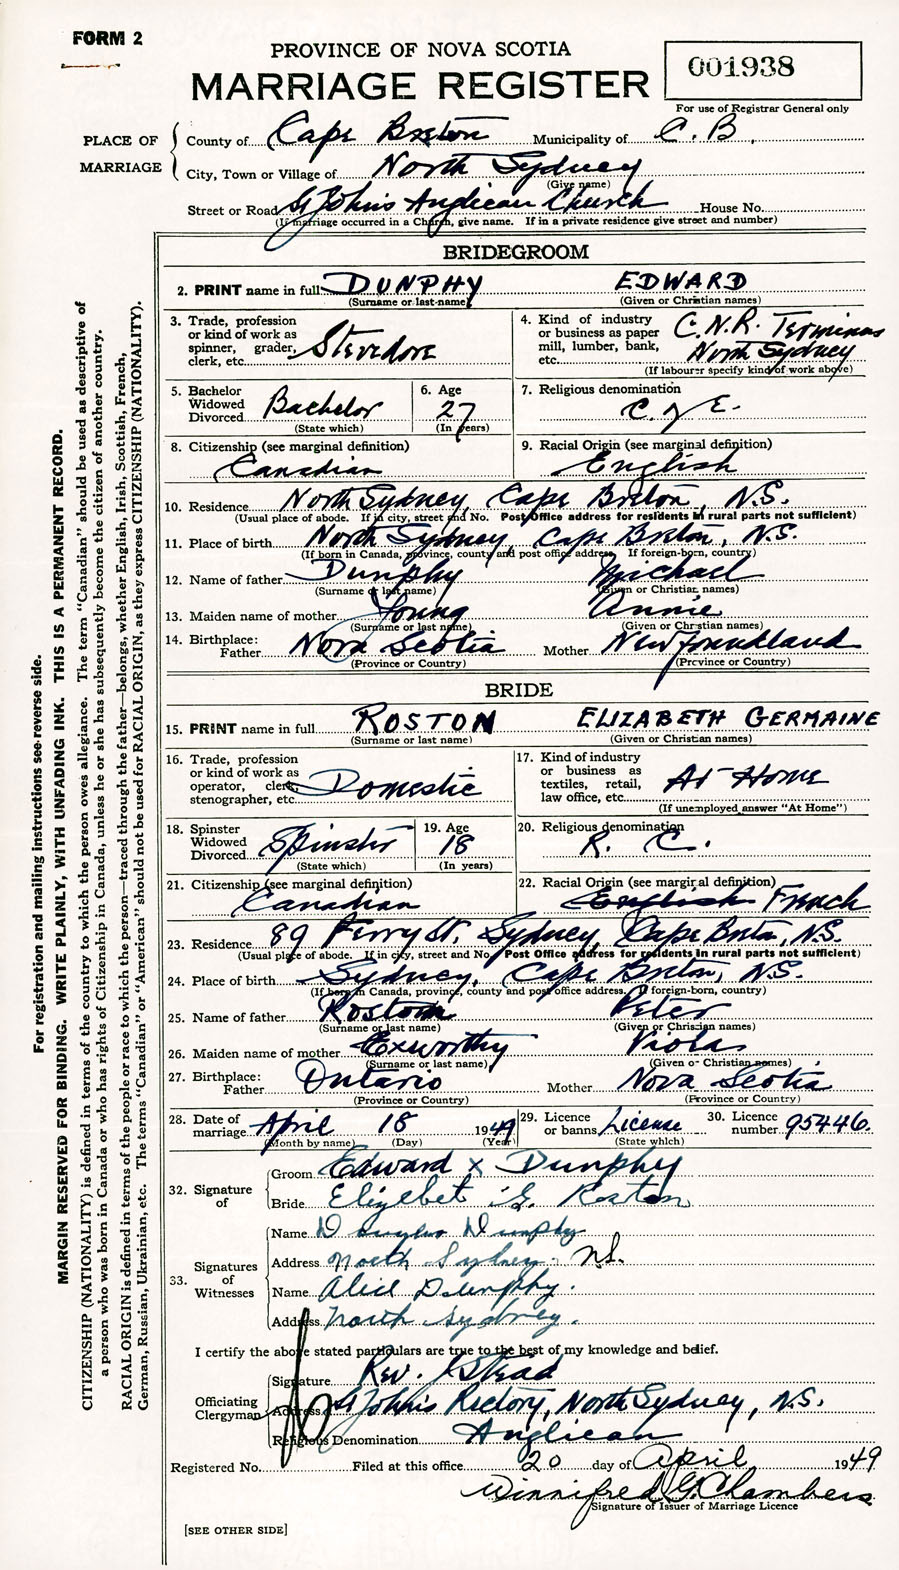 FORM 2
PROVINCE OF NOVA SCOTIA
MARRIAGE REGISTER
001938
For use of Registrar General only
PLACE OF MARRIAGE
County of Cape Breton Municipality of C. B.
City, Town or Village of North Sydney
(Give name)
Street or Road St Johns Anglican Church House No.
(If marriage occurred in a Church, give name. If in a private residence give street and number)
BRIDEGROOM
2. PRINT name in full DUNPHY EDWARD
(Surname or last name) (Given or Christian names)
3. Trade, profession or kind of work as spinner, grader, clerk, etc. Stevedore
4. Kind of industry or business as paper mill, lumber, bank, etc. C.N.R. Terminus North Sydney
(If labourer specify kind of work above)
5. Bachelor Widowed Divorced Bachelor
(State which)
6. Age 27
(In years)
7. Religious denomination C of E.
8. Citizenship (see marginal definition) Canadian
9. Racial Origin (see marginal definition) English
10. Residence North Sydney, Cape Breton, N.S.
(Usual place of abode. If in city, street and No. Post Office address for residents in rural parts not sufficient)
11. Place of birth North Sydney, Cape Breton, N.S.
(If born in Canada, province, county and post office address. If foreign-born, country)
12. Name of father Dunphy Michael
(Surname or last name) (Given or Christian names)
13. Maiden name of mother Young Annie
(Surname or last name) (Given or Christian names)
14. Birthplace: Father Nova Scotia Mother Newfoundland
(Province or Country) (Province or Country)
BRIDE
15. PRINT name in full ROSTON ELIZABETH GERMAINE
(Surname or last name) (Given or Christian names)
16. Trade, profession or kind of work as operator, clerk, stenographer, etc. Domestic
17. Kind of industry or business as textiles, retail, law office, etc. At Home
(If unemployed answer "At Home")
18. Spinster Widowed Divorced Spinster
(State which)
19. Age 18
(In years)
20. Religious denomination R. C.
21. Citizenship (see marginal definition) Canadian
22. Racial Origin (see marginal definition) English French
23. Residence 89 Ferry St. Sydney, Cape Breton, N.S.
(Usual place of abode. If in city, street and No. Post Office address for residents in rural parts not sufficient)
24. Place of birth Sydney, Cape Breton, N.S.
(If born in Canada, province, county and post office address. If foreign-born, country)
25. Name of father Roston Peter
(Surname or last name) (Given or Christian names)
26. Maiden name of mother Exworthy Viola
(Surname or last name) (Given or Christian names)
27. Birthplace: Father Ontario Mother Nova Scotia
(Province or Country) (Province or Country)
28. Date of marriage April 18 1949
(Month by name) (Day) (Year)
29. Licence or banns License
(State which)
30. Licence number 95446.
32. Signature of
Groom Edward x Dunphy
Bride Elizebet G. Roston
33. Signatures of Witnesses
Name Douglas Dunphy
Address North Sydney NS.
Name Alice Dunphy.
Address North Sydney.
I certify the above stated particulars are true to the best of my knowledge and belief.
Officiating Clergyman
Signature Rev. J Stead
Address St Johns Rectory, North Sydney, N.S.
Religious Denomination Anglican
Registered No. Filed at this office 20 day of April 1949
Winnifred G. Chambers
Signature of Issuer of Marriage Licence
[SEE OTHER SIDE]
For registration and mailing instructions see reverse side.
MARGIN RESERVED FOR BINDING. WRITE PLAINLY, WITH UNFADING INK. THIS IS A PERMANENT RECORD.
CITIZENSHIP (NATIONALITY) is defined in terms of the country to which the person owes allegiance. The term "Canadian" should be used as descriptive of
a person who was born in Canada or who has rights of Citizenship in Canada, unless he or she has subsequently become the citizen of another country.
RACIAL ORIGIN is defined in terms of the people or race to which the person—traced through the father—belongs, whether English, Irish, Scottish, French,
German, Russian, Ukrainian, etc. The terms "Canadian" or "American" should not be used for RACIAL ORIGIN, as they express CITIZENSHIP (NATIONALITY).